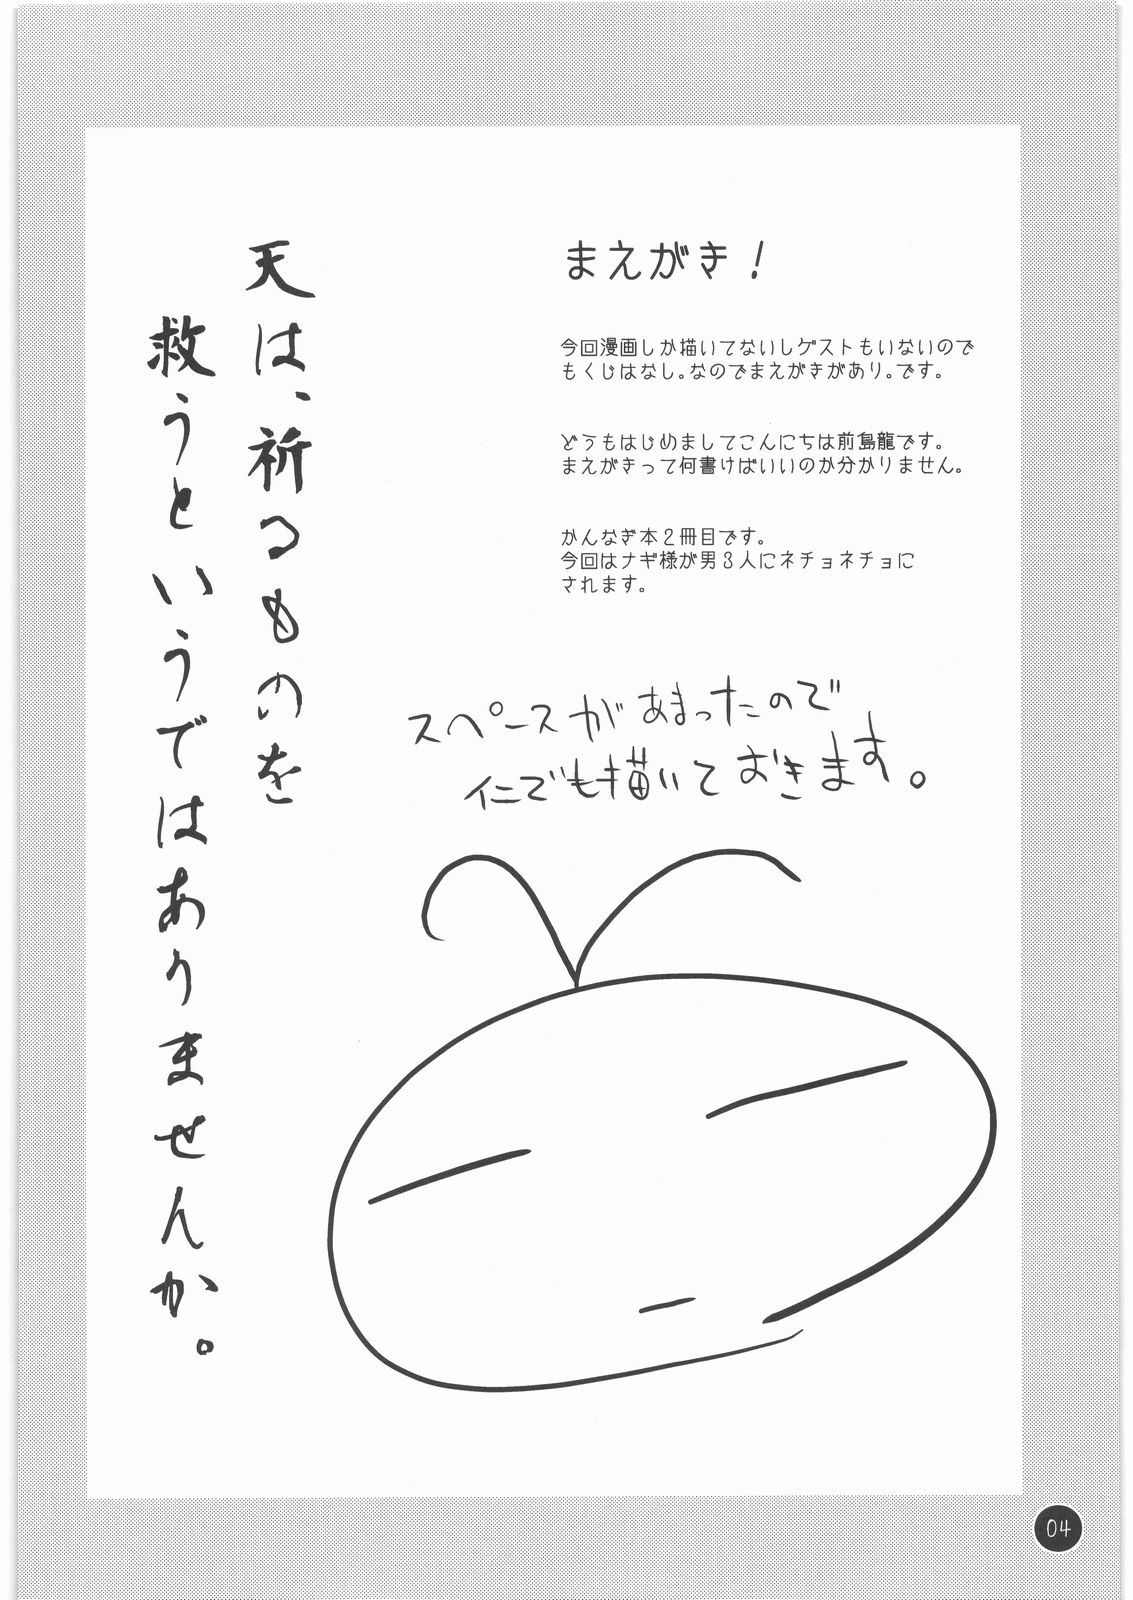 まえがき！
今回漫画しか描いてないしゲストもいないので
もくじはなし。なのでまえがきがあり。です。
どうもはじめましてこんにちは前島龍です。
まえがきって何書けばいいのか分かりません。
かんなぎ本２冊目です。
今回はナギ様が男３人にネチョネチョに
されます。
スペースがあまったので
仁でも描いておきます。
天は、祈るものを
救うというではありませんか。
04